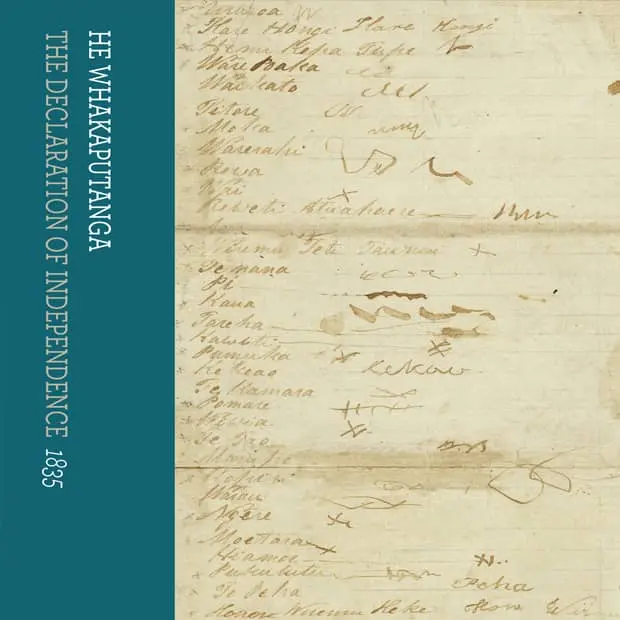 HE WHAKAPUTANGA
THE DECLARATION OF INDEPENDENCE 1835
Hare Hongi Hare Hongi
Hemi Kepa Tupe
Ware Poaka
Waikato
Titore
Moka
Warerahi
Rewa
Wai
Reweti Atuahaere
Wiremu Teti Taunui
Te Nana
Pi
Kaua
Tareha
Kawiti
Pumuka
Kekeao Kekeao
Te Kamara
Pomare
Wiwia
Te Tao
Marupo
Kopiri
Warau
Ngere
Moetara
Hiamoe
Pukututu
Te Peka Peka
Hone Wiremu Heke Hone Wi